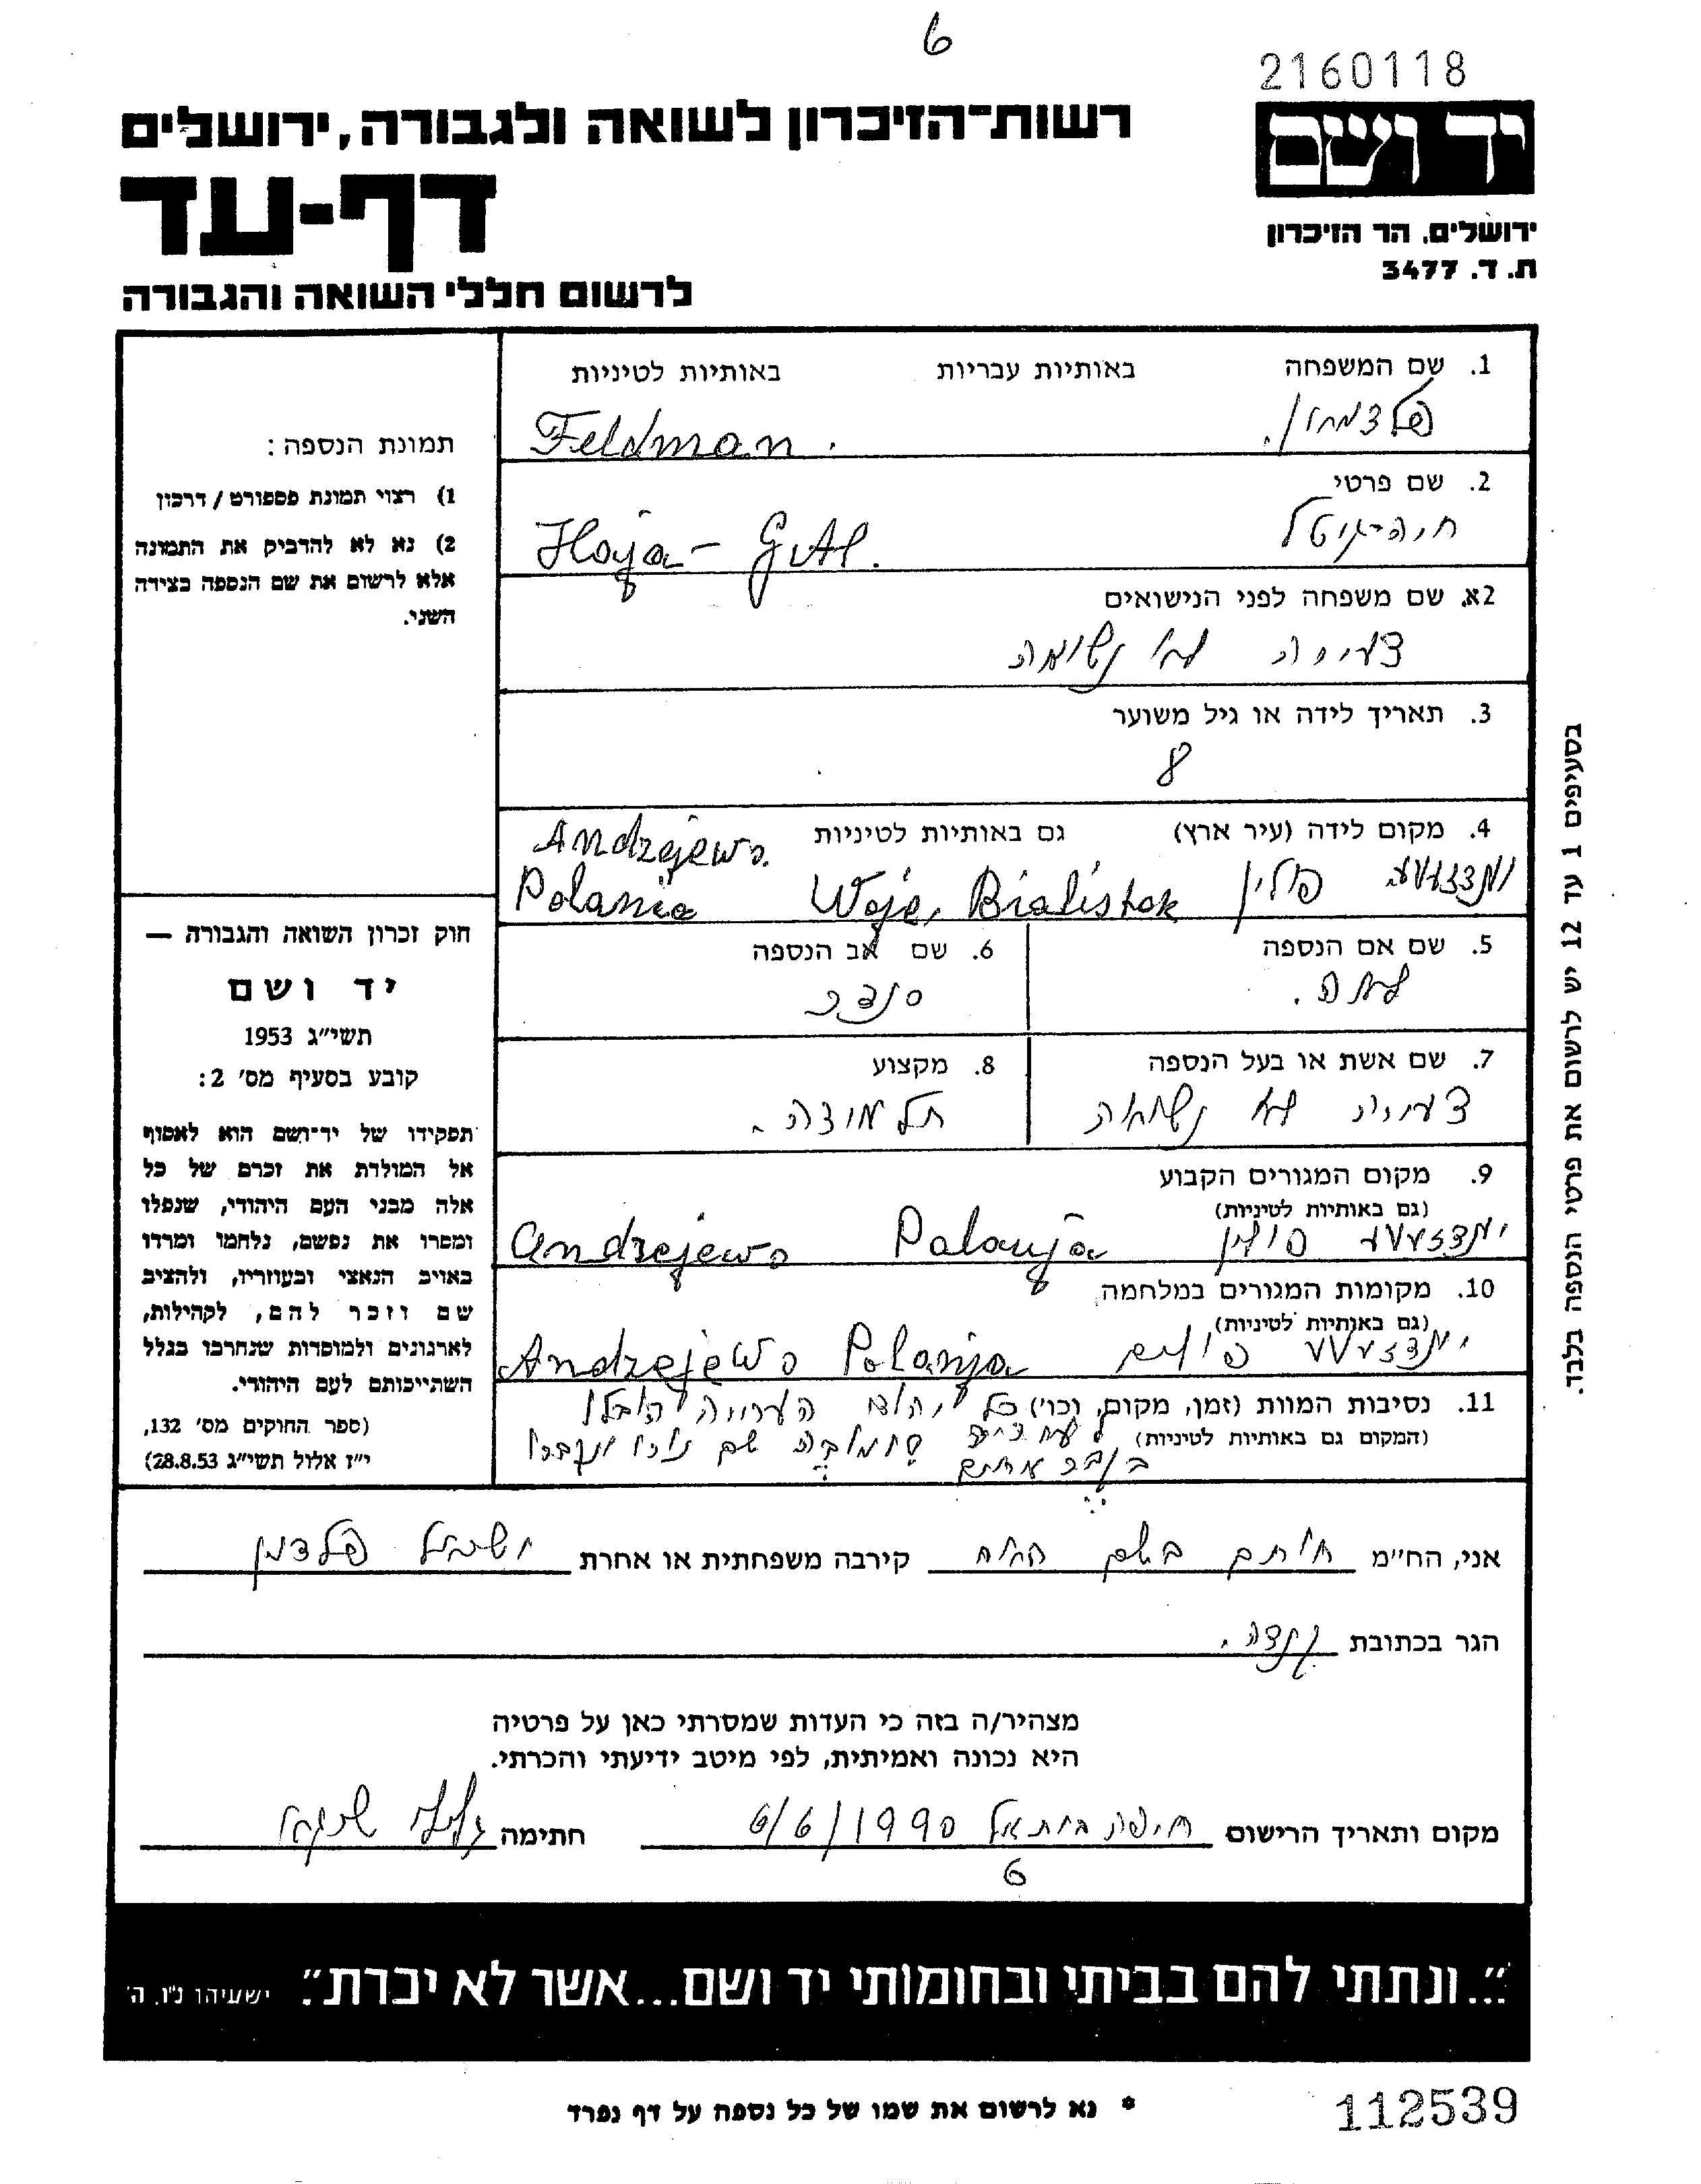 6
2160118
יד ושם
ירושלים, הר הזיכרון
ת. ד. 3477
רשות־הזיכרון לשואה ולגבורה, ירושלים
דף-עד
לרשום חללי השואה והגבורה
1. שם המשפחה באותיות עבריות באותיות לטיניות
פלדמן. Feldman.
2. שם פרטי
חיה-גוטל Haja - Gutl.
2א. שם משפחה לפני הנישואים
צעירה לא נשואה
3. תאריך לידה או גיל משוער
8
4. מקום לידה (עיר ארץ) גם באותיות לטיניות Andrzejewo.
פולין Woje, Bialistok Polania
5. שם אם הנספה
6. שם אב הנספה
7. שם אשת או בעל הנספה
צעירה לא נשואה
8. מקצוע
תלמידה.
9. מקום המגורים הקבוע
(גם באותיות לטיניות)
פולין Polanja Andrzejewo
10. מקומות המגורים במלחמה
(גם באותיות לטיניות)
Andrzejewo Polanja
11. נסיבות המוות (זמן, מקום, וכו') כל יהודי העיירה הובלו
(המקום גם באותיות לטיניות) שם
בקבר אחים
תמונת הנספה:
1) רצוי תמונת פספורט / דרכון
2) נא לא להדביק את התמונה
אלא לרשום את שם הנספה בצידה
השני.
חוק זכרון השואה והגבורה —
יד ושם
תשי"ג 1953
קובע בסעיף מס' 2:
תפקידו של יד־ושם הוא לאסוף
אל המולדת את זכרם של כל
אלה מבני העם היהודי, שנפלו
ומסרו את נפשם, נלחמו ומרדו
באויב הנאצי ובעוזריו, ולהציב
שם וזכר להם, לקהילות,
לארגונים ולמוסדות שנחרבו בגלל
השתייכותם לעם היהודי.
(ספר החוקים מס' 132,
י"ז אלול תשי"ג 28.8.53)
בסעיפים 1 עד 12 יש לרשום את פרטי הנספה בלבד.
אני, הח"מ חותם בשם האח קירבה משפחתית או אחרת ישראל פלדמן
הגר בכתובת קנדה.
מצהיר/ה בזה כי העדות שמסרתי כאן על פרטיה
היא נכונה ואמיתית, לפי מיטב ידיעתי והכרתי.
מקום ותאריך הרישום חיפה 6/6/1990 חתימה
6
"...ונתתי להם בביתי ובחומותי יד ושם...אשר לא יכרת". ישעיהו נ"ו, ה'
* נא לרשום את שמו של כל נספה על דף נפרד
112539